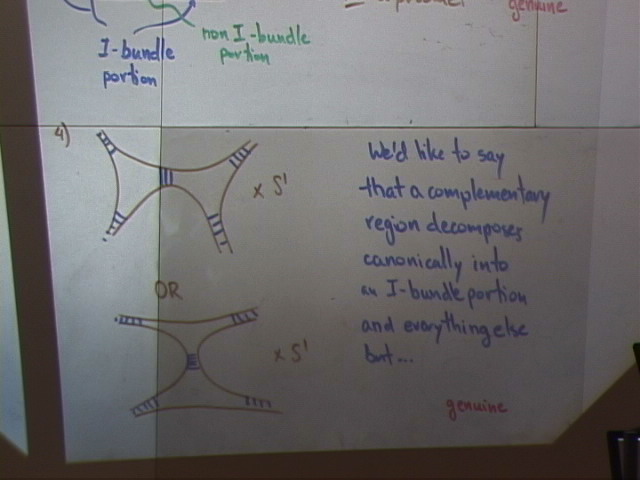 genuine
I-bundle
portion
non I-bundle
portion
4)
x S'
OR
x S'
We'd like to say
that a complementary
region decomposes
canonically into
an I-bundle portion
and everything else
but...
genuine